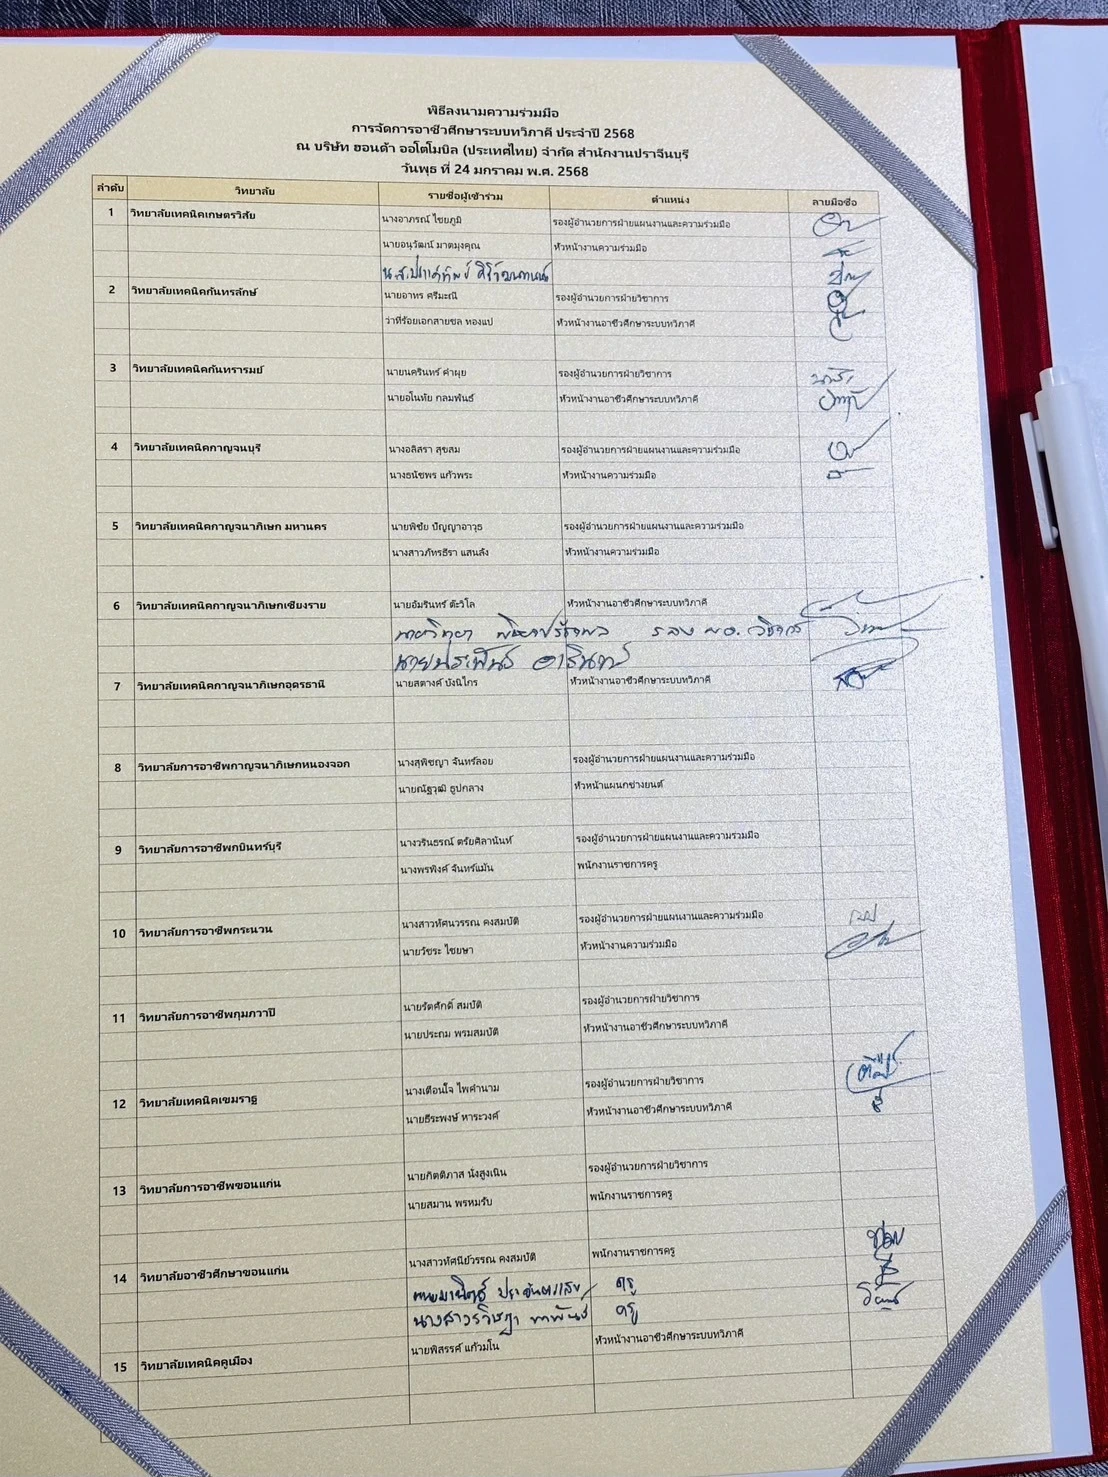 พิธีลงนามความร่วมมือ
การจัดการอาชีวศึกษาระบบทวิภาคี ประจำปี 2568
ณ บริษัท ฮอนด้า ออโตโมบิล (ประเทศไทย) จำกัด สำนักงานปราจีนบุรี
วันพุธ ที่ 24 มกราคม พ.ศ. 2568
ลำดับ วิทยาลัย รายชื่อผู้เข้าร่วม ตำแหน่ง ลายมือชื่อ
1 วิทยาลัยเทคนิคเกษตรวิสัย นางอาภรณ์ ไชยภูมิ รองผู้อำนวยการฝ่ายแผนงานและความร่วมมือ
นายอนุวัฒน์ มาตมุงคุณ หัวหน้างานความร่วมมือ
น.ส.
2 วิทยาลัยเทคนิคกันทรลักษ์ นายอาทร ศรีมะณี รองผู้อำนวยการฝ่ายวิชาการ
ว่าที่ร้อยเอกสายชล ทองแป หัวหน้างานอาชีวศึกษาระบบทวิภาคี
3 วิทยาลัยเทคนิคกันทรารมย์ นายนครินทร์ คำผุย รองผู้อำนวยการฝ่ายวิชาการ
นายอโนทัย กลมพันธ์ หัวหน้างานอาชีวศึกษาระบบทวิภาคี
4 วิทยาลัยเทคนิคกาญจนบุรี นางอลิสรา สุขสม รองผู้อำนวยการฝ่ายแผนงานและความร่วมมือ
นางธนัชพร แก้วพระ หัวหน้างานความร่วมมือ
5 วิทยาลัยเทคนิคกาญจนาภิเษก มหานคร นายพิชัย ปัญญาอาวุธ รองผู้อำนวยการฝ่ายแผนงานและความร่วมมือ
นางสาวภัทรธีรา แสนลัง หัวหน้างานความร่วมมือ
6 วิทยาลัยเทคนิคกาญจนาภิเษกเชียงราย นายอัมรินทร์ ต๊ะวิโล หัวหน้างานอาชีวศึกษาระบบทวิภาคี
นายวิทยา รอง ผอ. วิชาการ
นายประพันธ์ อารินทร์
7 วิทยาลัยเทคนิคกาญจนาภิเษกอุดรธานี นายสตางค์ บังนิไกร หัวหน้างานอาชีวศึกษาระบบทวิภาคี
8 วิทยาลัยการอาชีพกาญจนาภิเษกหนองจอก นางสุพิชญา จันทร์ลอย รองผู้อำนวยการฝ่ายแผนงานและความร่วมมือ
นายณัฐวุฒิ ธูปกลาง หัวหน้าแผนกช่างยนต์
9 วิทยาลัยการอาชีพกบินทร์บุรี นางวรินธรณ์ ตรัยศิลานันท์ รองผู้อำนวยการฝ่ายแผนงานและความร่วมมือ
นางพรพิงค์ จันทร์แม้น พนักงานราชการครู
10 วิทยาลัยการอาชีพกระนวน นางสาวทัศนวรรณ คงสมบัติ รองผู้อำนวยการฝ่ายแผนงานและความร่วมมือ
นายวัชระ ไชยษา หัวหน้างานความร่วมมือ
11 วิทยาลัยการอาชีพกุมภวาปี นายรัตศักดิ์ สมบัติ รองผู้อำนวยการฝ่ายวิชาการ
นายประถม พรมสมบัติ หัวหน้างานอาชีวศึกษาระบบทวิภาคี
12 วิทยาลัยเทคนิคเขมราฐ นางเตือนใจ ไพคำนาม รองผู้อำนวยการฝ่ายวิชาการ
นายธีระพงษ์ หาระวงค์ หัวหน้างานอาชีวศึกษาระบบทวิภาคี
13 วิทยาลัยการอาชีพขอนแก่น นายกิตติภาส นั่งสูงเนิน รองผู้อำนวยการฝ่ายวิชาการ
นายสมาน พรหมรับ พนักงานราชการครู
14 วิทยาลัยอาชีวศึกษาขอนแก่น นางสาวทัศนีย์วรรณ คงสมบัติ พนักงานราชการครู
ครู
นางสาว ครู
15 วิทยาลัยเทคนิคคูเมือง นายพิสรรค์ แก้วมโน หัวหน้างานอาชีวศึกษาระบบทวิภาคี